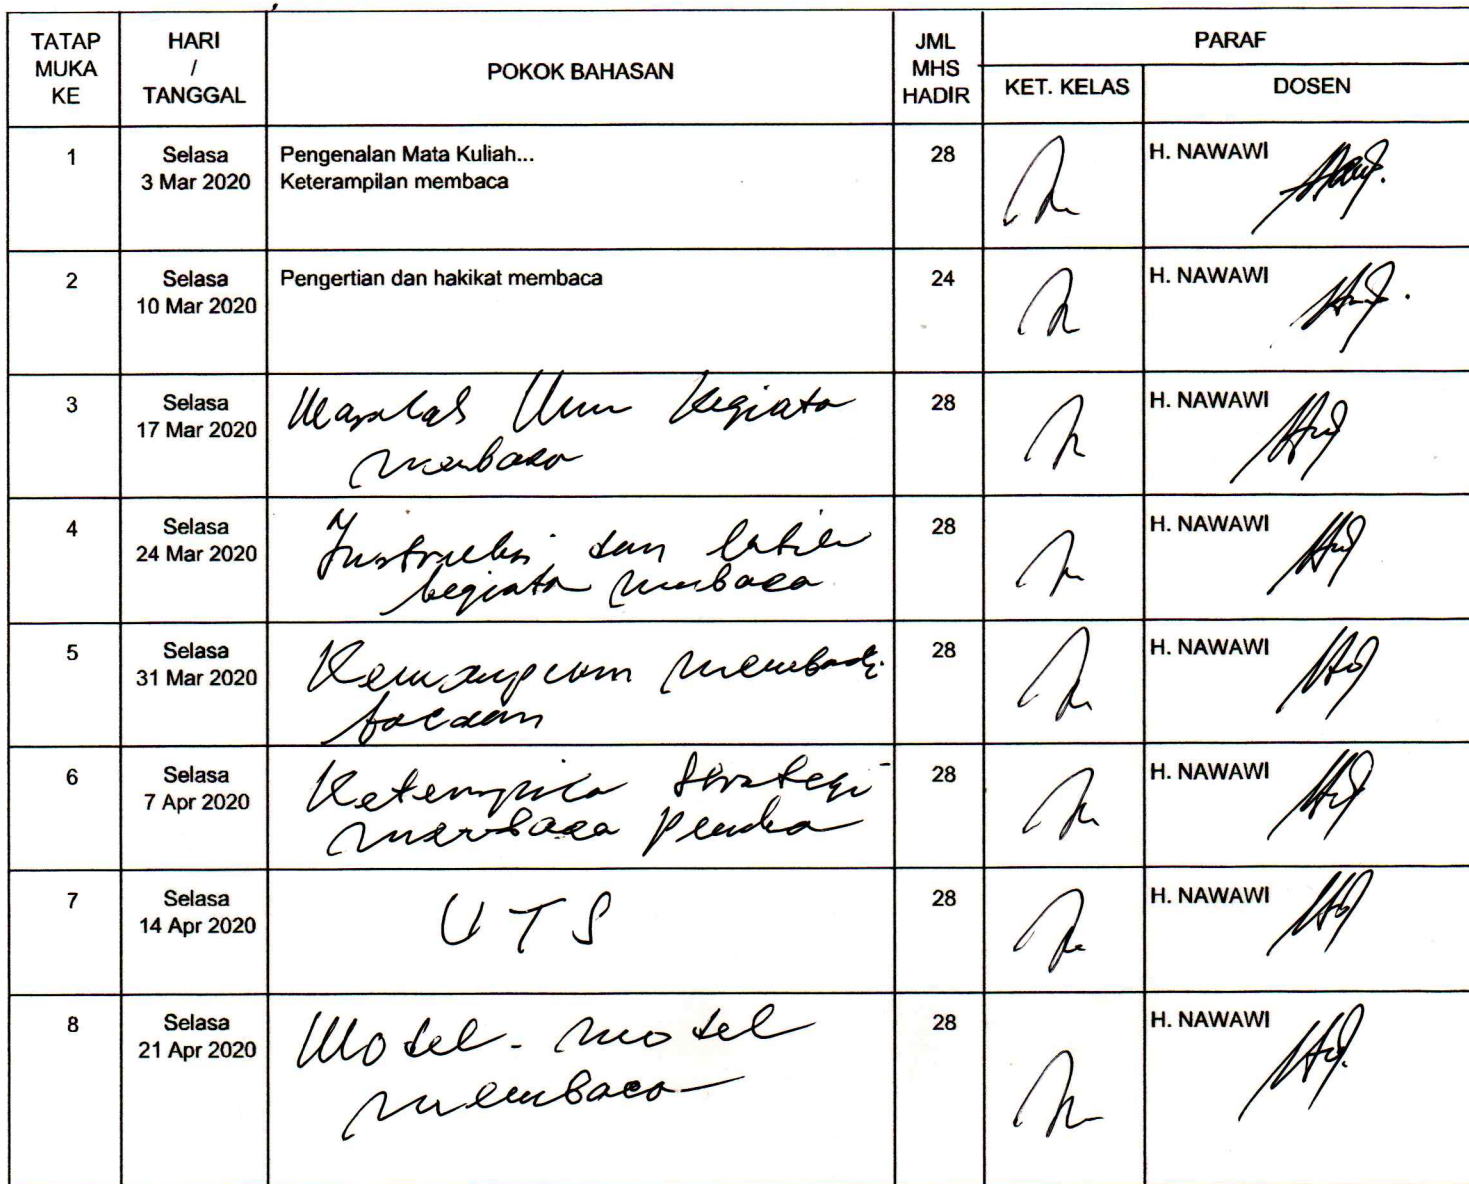 TATAP MUKA KE
HARI / TANGGAL
POKOK BAHASAN
JML MHS HADIR
PARAF
KET. KELAS
DOSEN
1
Selasa
3 Mar 2020
Pengenalan Mata Kuliah...
Keterampilan membaca
28
H. NAWAWI
2
Selasa
10 Mar 2020
Pengertian dan hakikat membaca
24
H. NAWAWI
3
Selasa
17 Mar 2020
Masalah Umum Kegiatan
membaca
28
H. NAWAWI
4
Selasa
24 Mar 2020
Instruksi dan latihan
kegiatan membaca
28
H. NAWAWI
5
Selasa
31 Mar 2020
Kemampuan
bacaan
28
H. NAWAWI
6
Selasa
7 Apr 2020
strategi
membaca
28
H. NAWAWI
7
Selasa
14 Apr 2020
UTS
28
H. NAWAWI
8
Selasa
21 Apr 2020
Model-model
membaca
28
H. NAWAWI